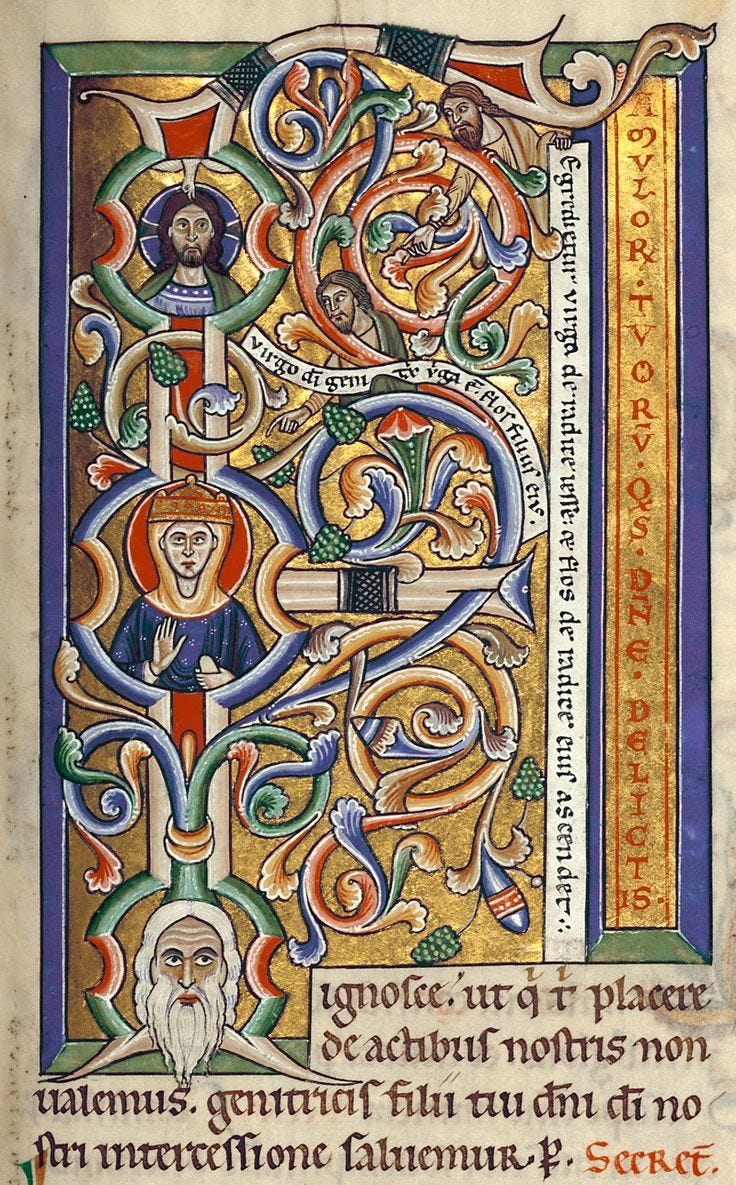 AMULOR. TUORU. QS. DNE. DELICTIS.
Egredietur virga de radice iesse: & flos de radice eius ascendet.:
virgo di geni tr v̄ga ē flos filius eius.
ignosce. ut q̄ t̄ placere
de actibus nostris non
valemus. genitricis filii tui dn̄i di no
stri intercessione salvemur. P. Secret̄.